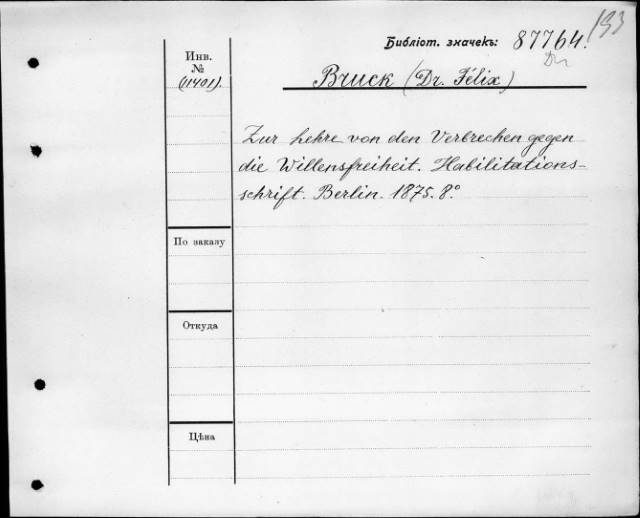 193
Библіот. значекъ: 87764.
Инв.
№
(11401).
Bruck (Dr. Félix)
Zur Lehre von den Verbrechen gegen
die Willensfreiheit. Habilitations-
schrift. Berlin. 1875. 8°
По заказу
Откуда
Цѣна